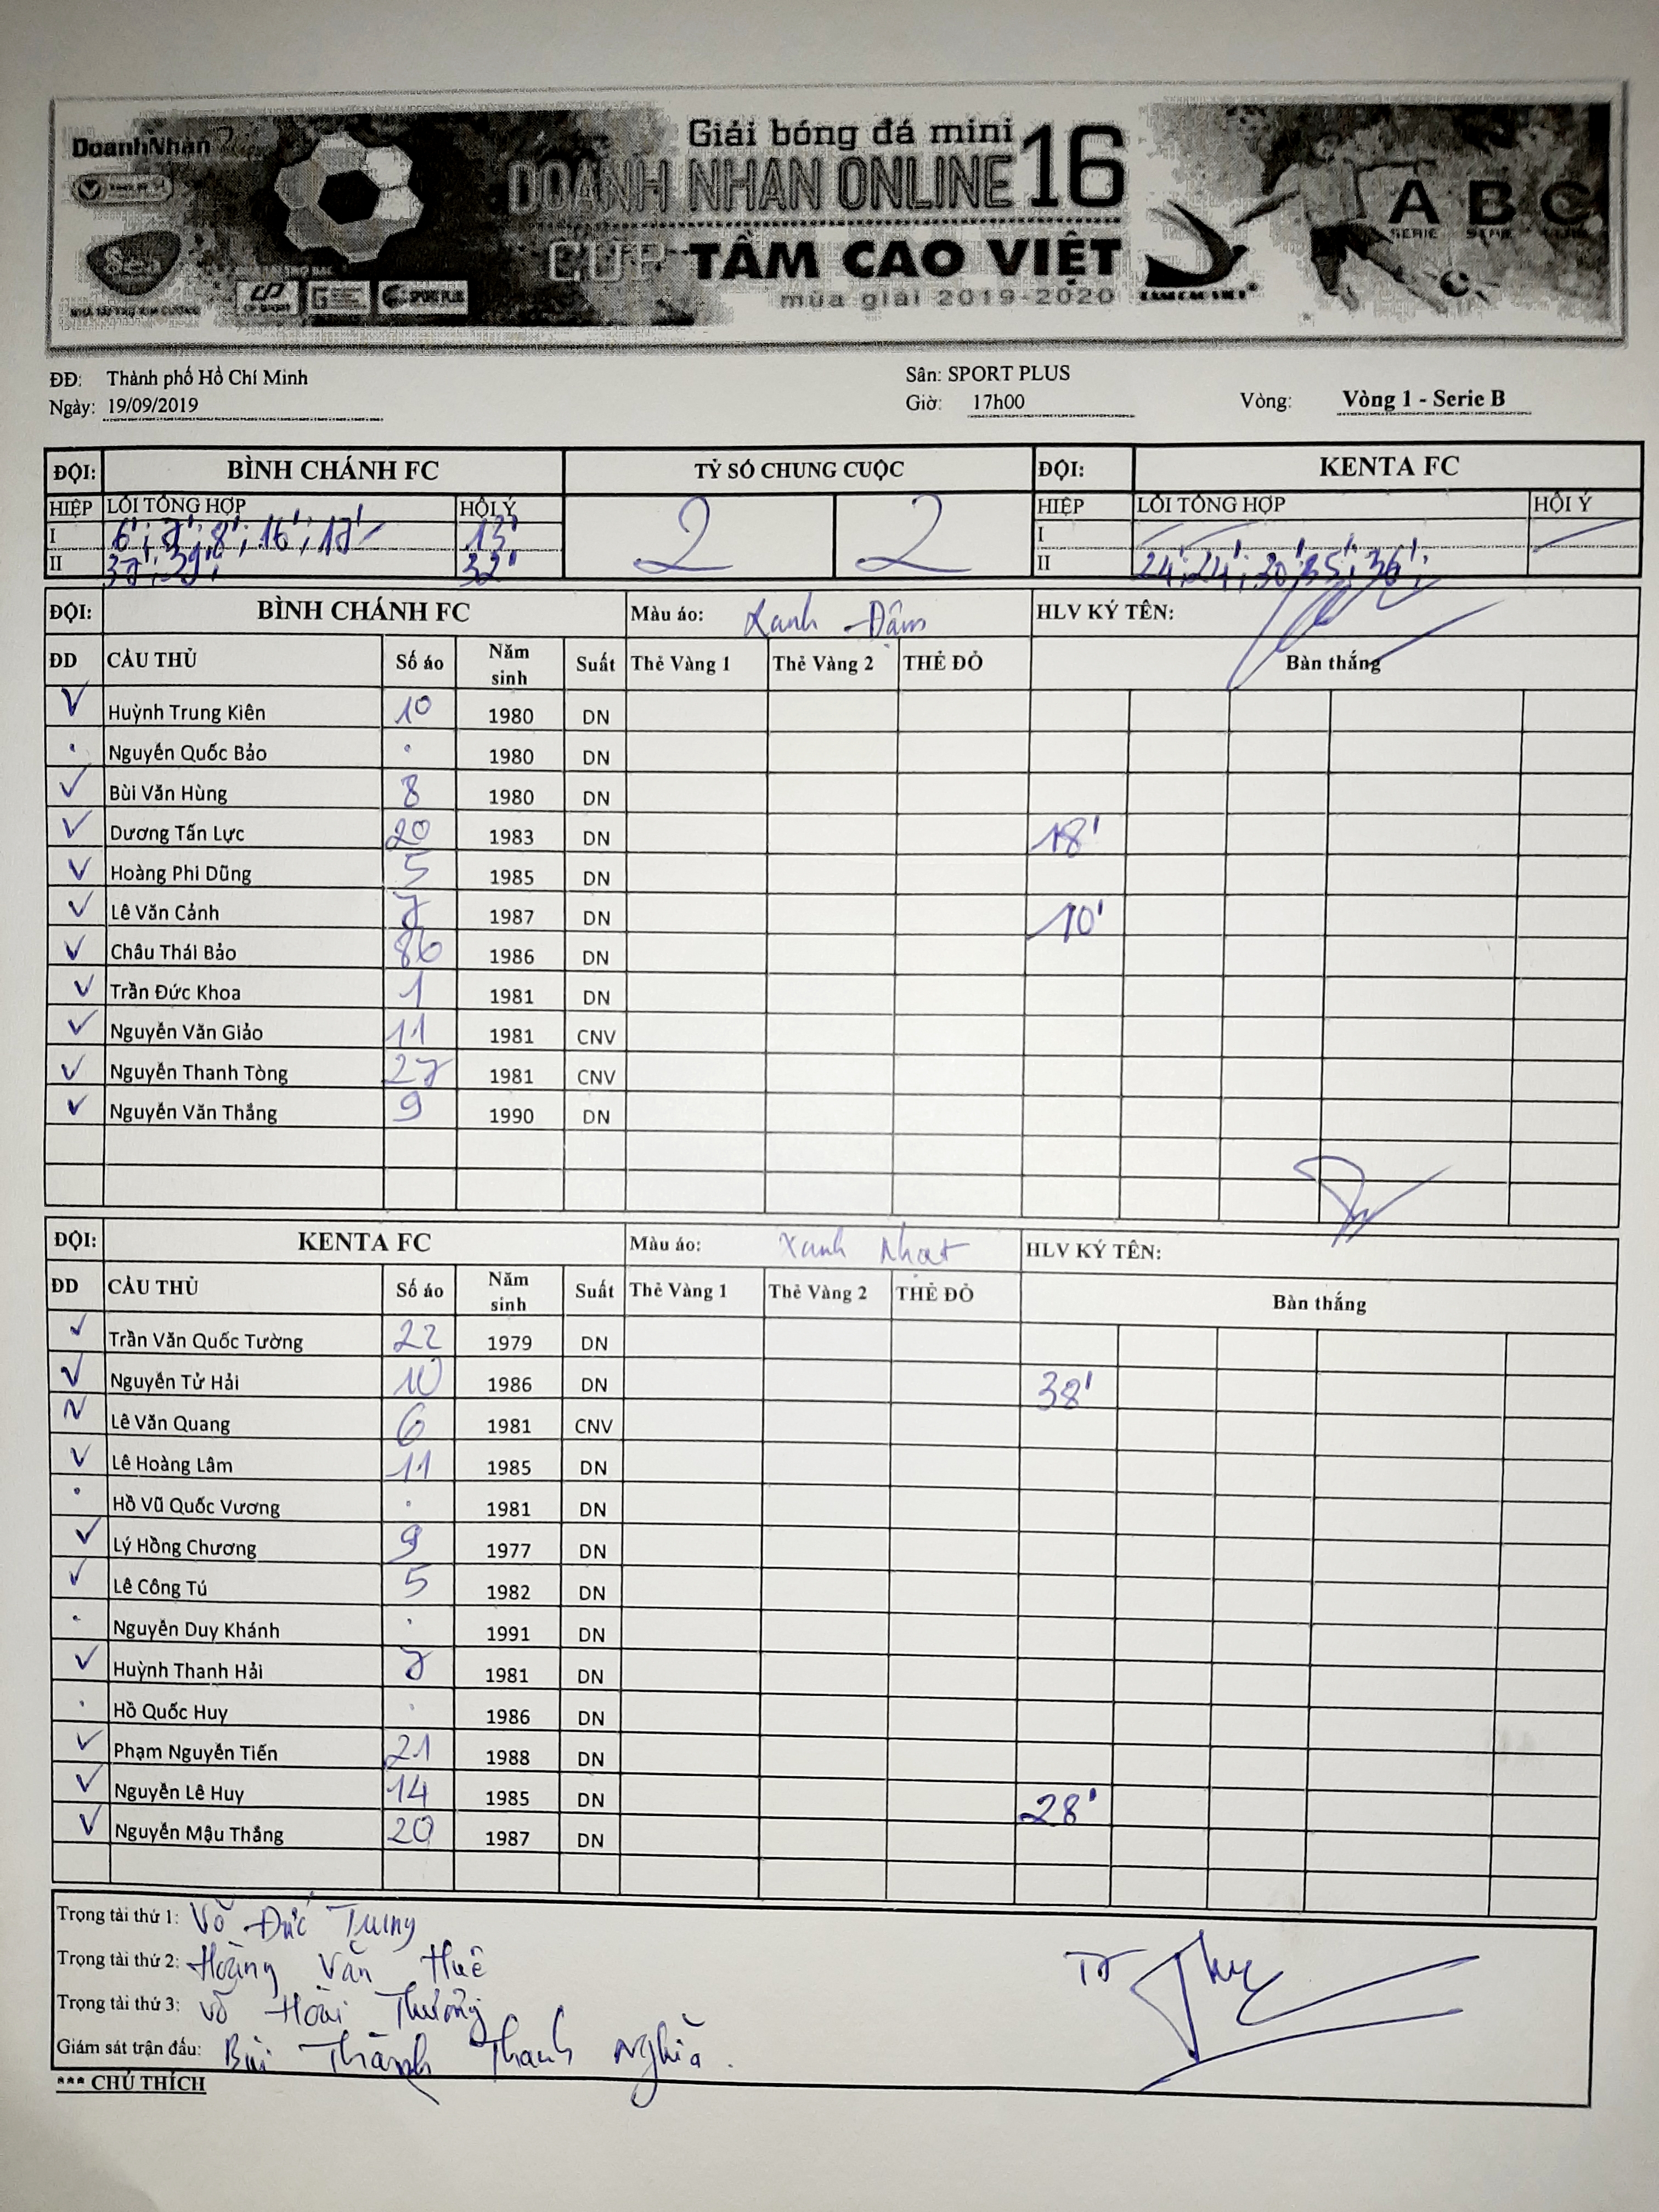 DoanhNhan
Giải bóng đá mini
DOANH NHAN ONLINE 16
CUP TẦM CAO VIỆT
mùa giải 2019-2020
A B C
SERIE
Sea
SPORT PLUS
TAM CAO VIET
ĐĐ: Thành phố Hồ Chí Minh Sân: SPORT PLUS
Ngày: 19/09/2019 Giờ: 17h00 Vòng: Vòng 1 - Serie B
ĐỘI: BÌNH CHÁNH FC TỶ SỐ CHUNG CUỘC ĐỘI: KENTA FC
HIỆP LỖI TỔNG HỢP HỘI Ý 2 2 HIỆP LỖI TỔNG HỢP HỘI Ý
I 6'; 7'; 8'; 16'; 17' 13' I
II 37'; 39'; 32' II 24'; 24'; 30'; 35'; 36';
ĐỘI: BÌNH CHÁNH FC Màu áo: Xanh Đậm HLV KÝ TÊN:
ĐD CẦU THỦ Số áo Năm sinh Suất Thẻ Vàng 1 Thẻ Vàng 2 THẺ ĐỎ Bàn thắng
Huỳnh Trung Kiên 10 1980 DN
Nguyễn Quốc Bảo 1980 DN
Bùi Văn Hùng 8 1980 DN
Dương Tấn Lực 20 1983 DN 18'
Hoàng Phi Dũng 5 1985 DN
Lê Văn Cảnh 7 1987 DN 10'
Châu Thái Bảo 86 1986 DN
Trần Đức Khoa 1 1981 DN
Nguyễn Văn Giảo 11 1981 CNV
Nguyễn Thanh Tòng 27 1981 CNV
Nguyễn Văn Thắng 9 1990 DN
ĐỘI: KENTA FC Màu áo: Xanh Nhạt HLV KÝ TÊN:
ĐD CẦU THỦ Số áo Năm sinh Suất Thẻ Vàng 1 Thẻ Vàng 2 THẺ ĐỎ Bàn thắng
Trần Văn Quốc Tường 22 1979 DN
Nguyễn Tử Hải 10 1986 DN 38'
Lê Văn Quang 6 1981 CNV
Lê Hoàng Lâm 11 1985 DN
Hồ Vũ Quốc Vương 1981 DN
Lý Hồng Chương 9 1977 DN
Lê Công Tú 5 1982 DN
Nguyễn Duy Khánh 1991 DN
Huỳnh Thanh Hải 7 1981 DN
Hồ Quốc Huy 1986 DN
Phạm Nguyễn Tiến 21 1988 DN
Nguyễn Lê Huy 14 1985 DN 28'
Nguyễn Mậu Thắng 20 1987 DN
Trọng tài thứ 1: Võ Đức Trung
Trọng tài thứ 2: Hoàng Văn Huê
Trọng tài thứ 3: Võ Hoài Thưởng
Giám sát trận đấu: Bùi Thành Thanh Nghĩa.
*** CHÚ THÍCH